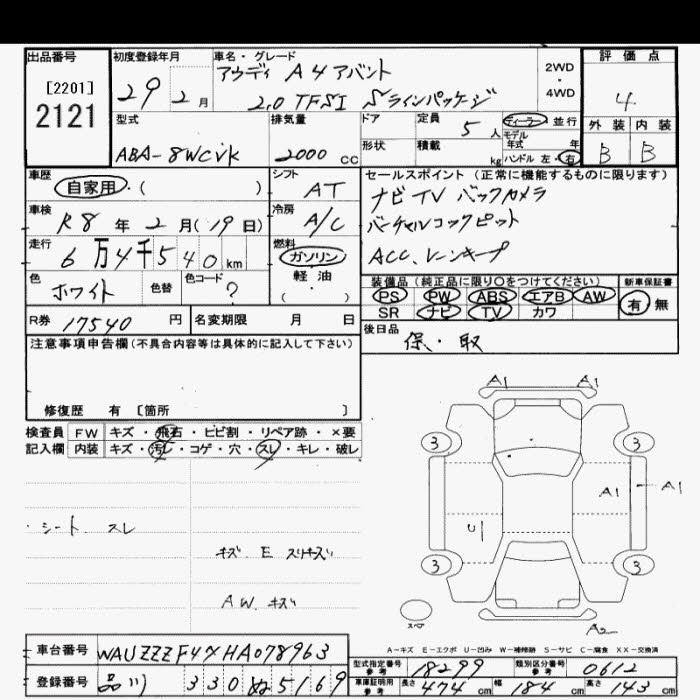 出品番号
[2201]
2121
初度登録年月
29 2月
車名・グレード
アウディ A4アバント
2.0 TFSI Sラインパッケージ
2WD
・
4WD
評価点
4
外装 内装
B B
型式
ABA-8WCVK
排気量
2000 CC
ドア
形状
定員 5人
積載 kg
ディーラー 並行
モデル年式 年
ハンドル 左・右
車歴
自家用・( )
シフト
AT
車検
R8年2月(19日)
冷房
A/C
走行
6万4千540km
燃料
ガソリン
軽油
( )
色
ホワイト 色替
色コード
?
セールスポイント (正常に機能するものに限ります)
ナビ TV バックカメラ
バーチャルコックピット
ACC. レーンキープ
装備品 (純正品に限り○をつけてください)
PS PW ABS エアB AW
SR ナビ TV カワ
新車保証書
有 無
R券 17540 円
名変期限 月 日
後日品
保・取
注意事項申告欄 (不具合内容等は具体的に記入して下さい)
修復歴 有 [箇所 ]
検査員 FW キズ・飛石・ヒビ割・リペア跡・×要
記入欄 内装 キズ・汚レ・コゲ・穴・スレ・キレ・破レ
・シート スレ
キズ E スリキズ
AW. キズ
A1 A1
3 3
A1 A1
U
3 3
スペア
A2
A-キズ E-エクボ U-凹み W-補修跡 S-サビ C-腐食 XX-交換済
車台番号 WAUZZZF4XHA078963
登録番号 品川 330 ぬ 5169
型式指定番号 参考 18299 類別区分番号 参考 0612
車庫証明用 参考 長さ 474cm 幅 184cm 高さ 143cm